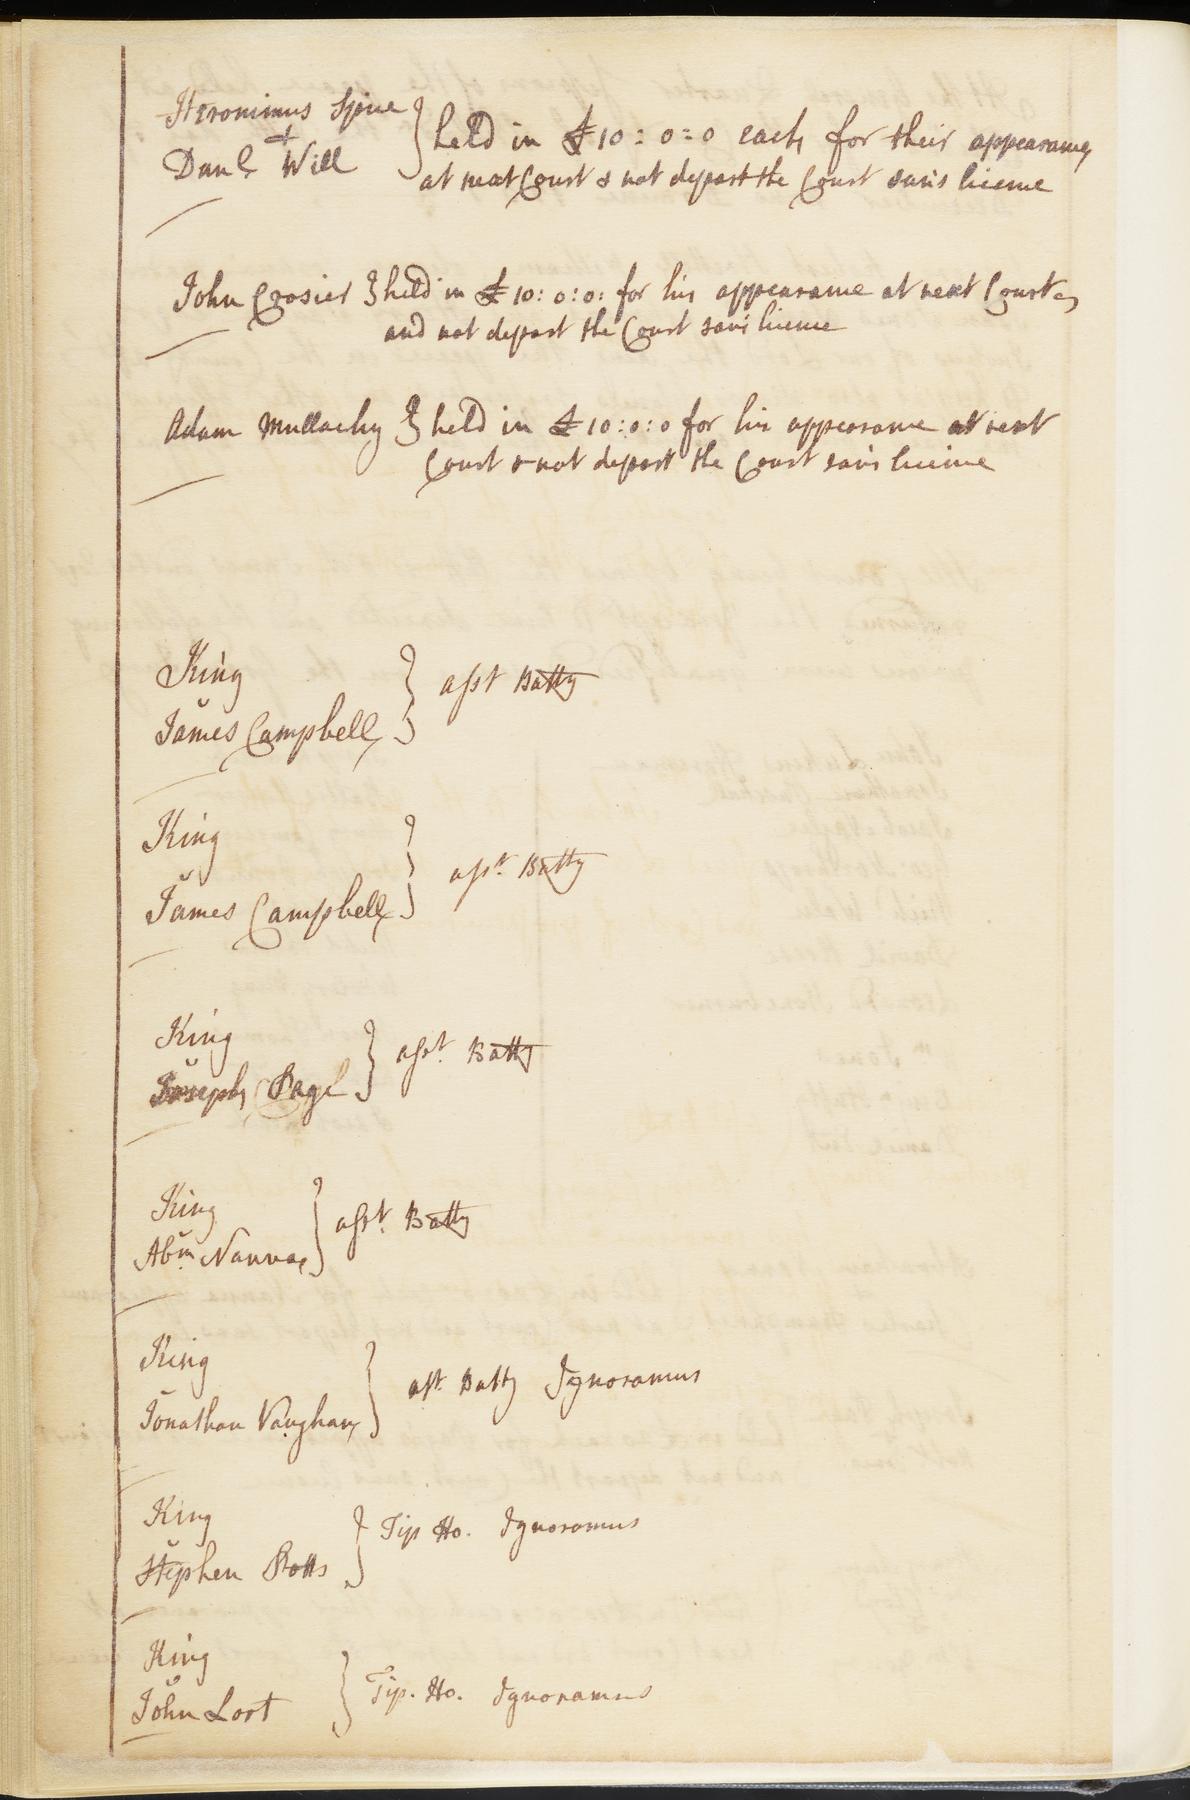 Hieronimus Spine
&
Danl. Will
} held in £10:0:0 each for their appearance
at next Court & not depart the Court sans licence
John Crosier } held in £10:0:0: for his appearance at next Court
and not depart the Court sans licence
Adam Mullachy } held in £10:0:0 for his appearance at next
Court & not depart the Court sans licence
King
v
James Campbell
} asst Batty
King
v
James Campbell
} asst. Batty
King
v
Joseph Pagl
} asst. Batty
King
v
Abm. Nanna
} asst. Batty
King
v
Jonathan Vaughan
} asst. Batty Ignoramus
King
v
Stephen Potts
} Tip Ho. Ignoramus
King
v
John Lort
} Tip. Ho. Ignoramus